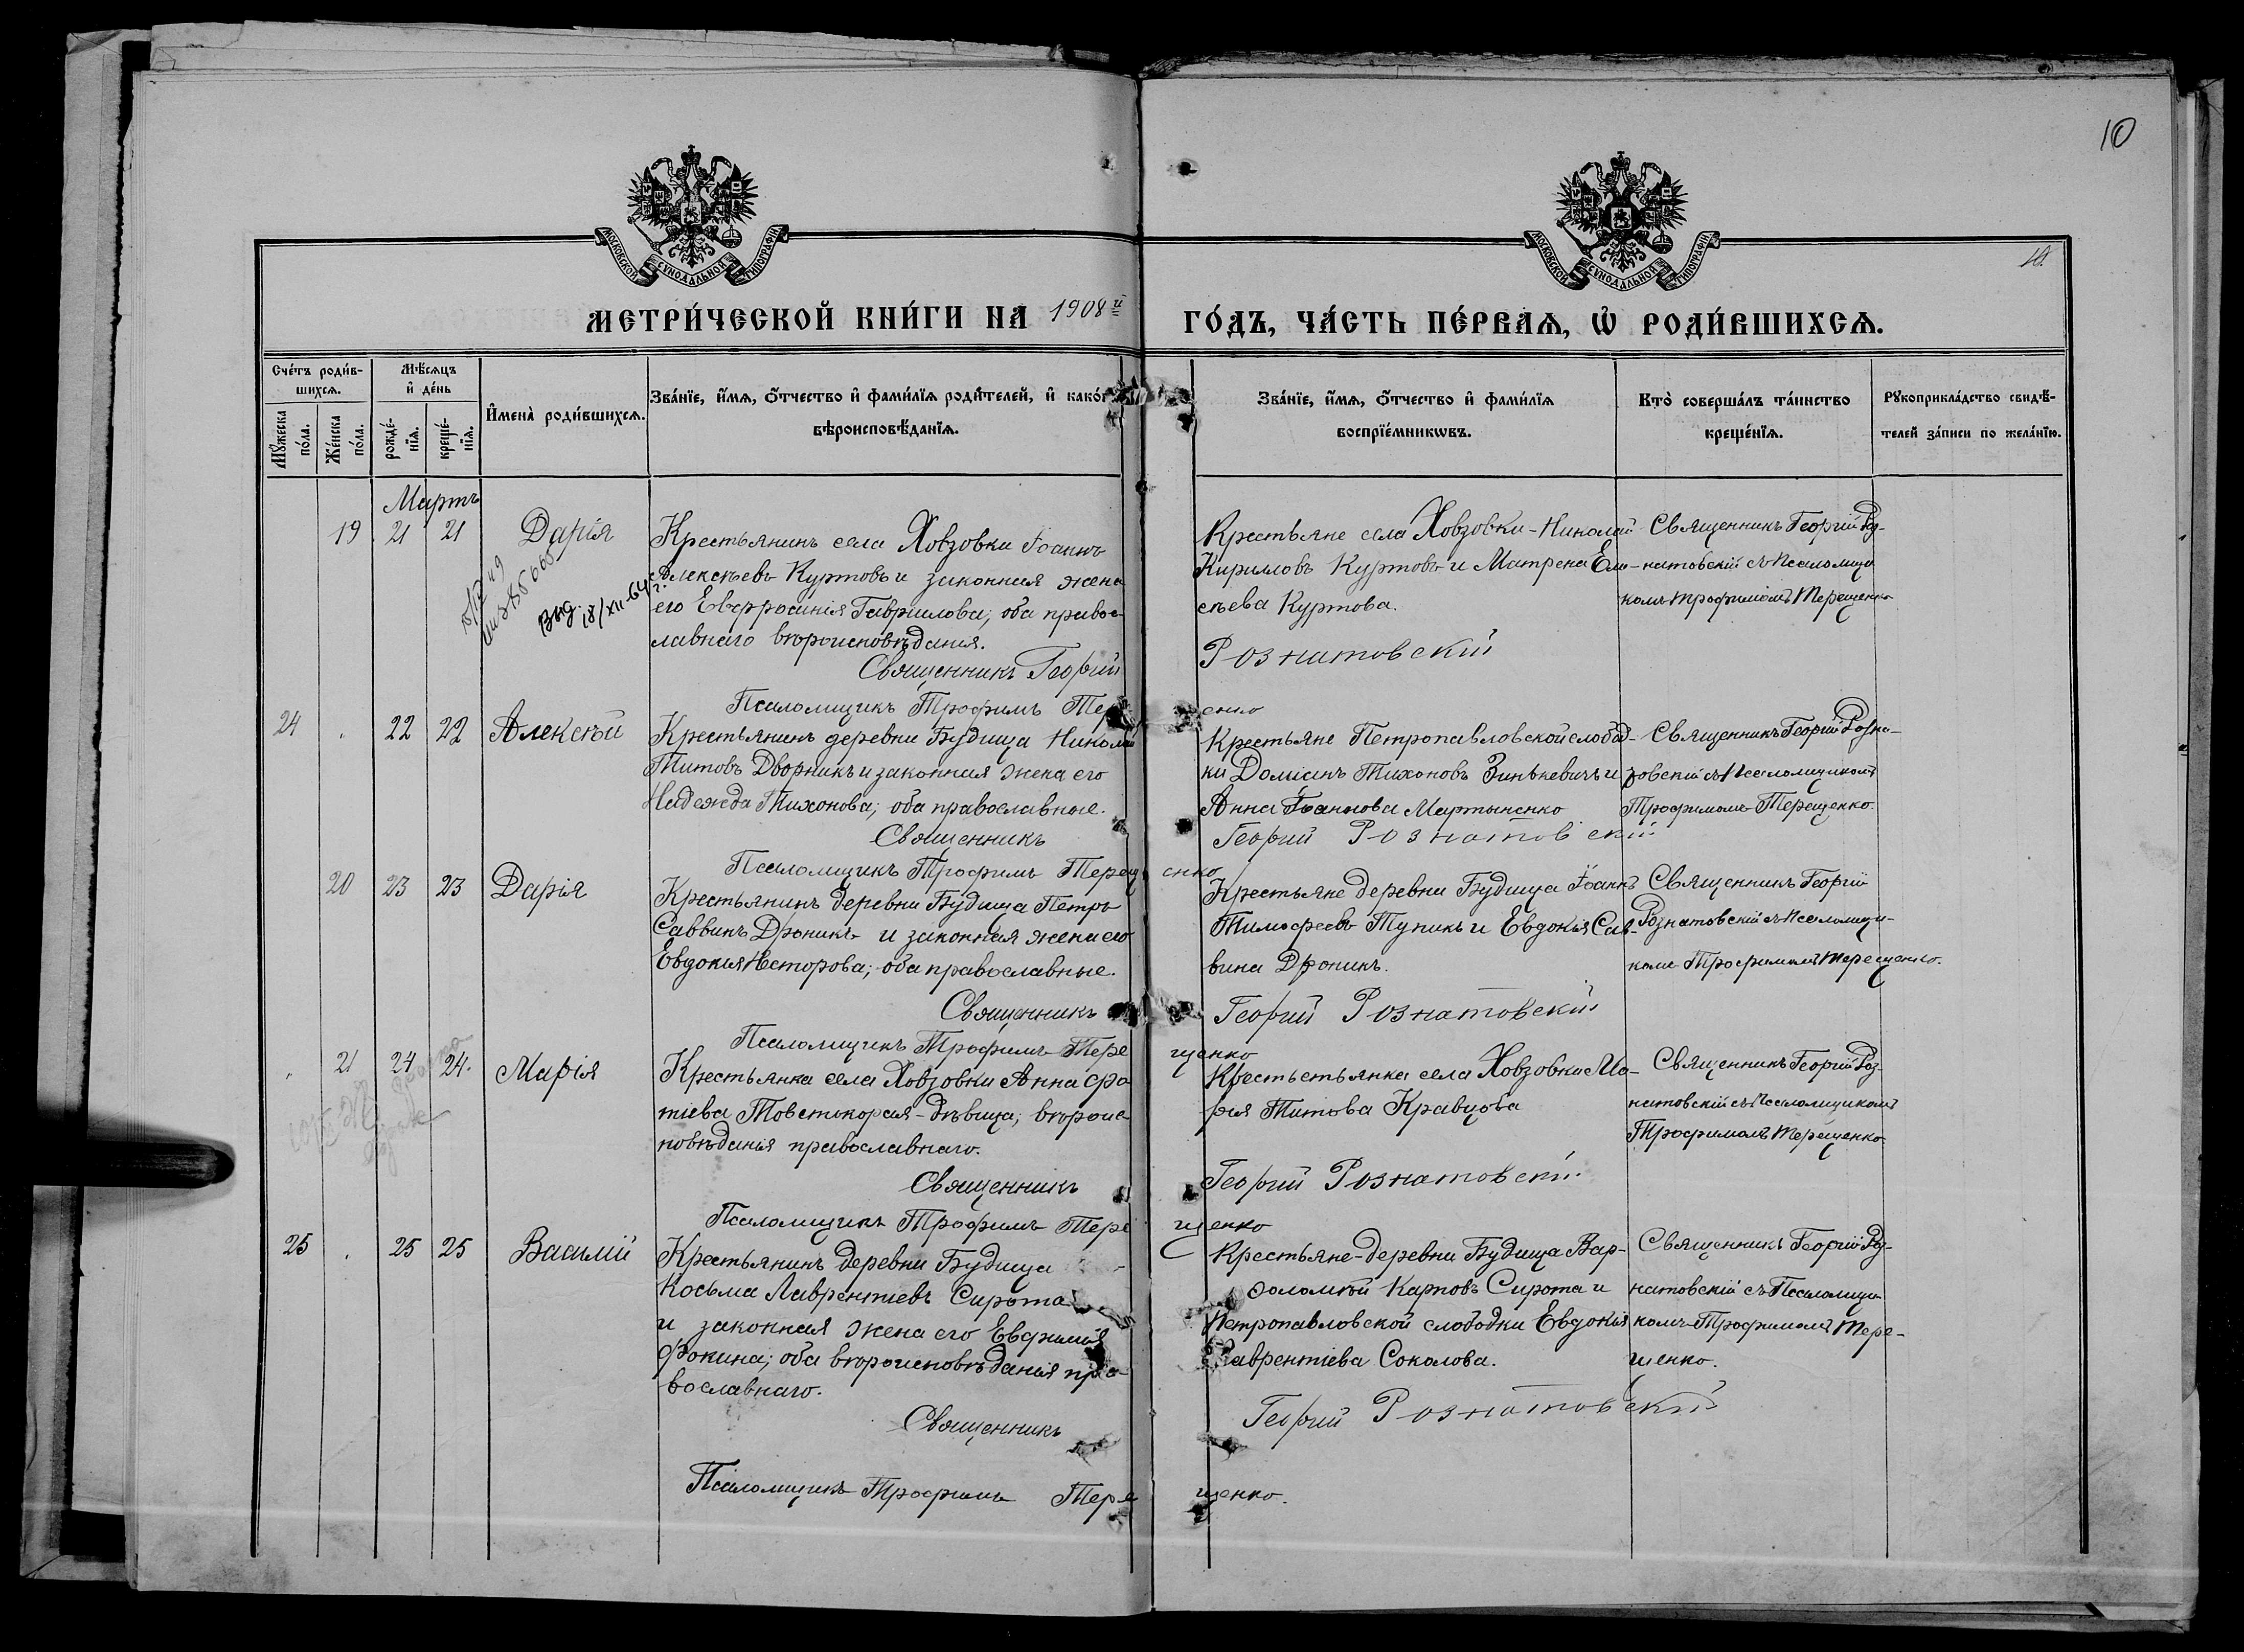 10
МОСКОВСКОЙ СѴНОДАЛЬНОЙ ТИПОГРАФІИ
МОСКОВСКОЙ СѴНОДАЛЬНОЙ ТИПОГРАФІИ
10.
МЕТРИ́ЧЕСКОЙ КНИ́ГИ НА 1908й
ГО́ДЪ, ЧА́СТЬ ПЕ́РВАѦ, Ѡ҆ РОДИ́ВШИХСѦ.
Сче́тъ роди́в-
шихсѧ.
Мꙋ́жеска
по́ла.
Же́нска
по́ла.
Мѣ́сѧцъ
и҆ де́нь
рожде́-
нїѧ.
креще́-
нїѧ.
И҆мена̀ роди́вшихсѧ.
Зва́нїе, и҆́мѧ, ѻ҆́тчество и҆ фамилїѧ роди́телей, и҆ како́г
вѣроисповѣ́данїѧ.
Зва́нїе, и҆́мѧ, ѻ҆́тчество и҆ фами́лїѧ
воспрїе́мникѡвъ.
Кто̀ соверша́лъ та́инство
креще́нїѧ.
Рꙋкоприкла́дство свидѣ́-
телей за́писи по жела́нїю.
Мартъ
19 21 21 Дарія
Крестьянинъ села Ховзовки Іоаннъ
Алексѣевъ Куртовъ и законная жена
его Евфросинія Гаврилова; оба правос-
лавнаго вѣроисповѣданія.
Священникъ Георгій
Псаломщикъ Трофимъ Тер
Выд. 18/XII-64 г.
Крестьяне села Ховзовки - Николай
Кирилловъ Куртовъ и Матрена Ели-
сѣева Куртова.
Рознатовскій
енко
Священникъ Георгій Роз-
натовскій съ Псаломщи
комъ Трофимомъ Терещенко
24 . 22 22 Алексѣй
Крестьянинъ деревни Будища Николай
Титовъ Дворникъ и законная жена его
Надежда Тихонова; оба православные.
Священникъ
Псаломщикъ Трофимъ Терещ
Крестьяне Петропавловской слобод-
ки Доміанъ Тихоновъ Зинькевичъ и
Анна Іоаннова Мартыненко
Георгій Рознатовскій
енко
Священникъ Георгій Розна-
товскій съ Псаломщикомъ
Трофимомъ Терещенко.
20 23 23 Дарія
Крестьянинъ деревни Будища Петръ
Саввинъ Дроникъ и законная жена его
Евдокія Несторова; оба православные.
Священникъ
Псаломщикъ Трофимъ Тере
Крестьяне деревни Будища Іоаннъ
Тимофеевъ Тупикъ и Евдокія Сав-
вина Дроникъ.
Георгій Рознатовскій
щенко
Священникъ Георгій
Рознатовскій съ Псаломщи-
комъ Трофимомъ Терещенко.
. 21 24 24. Марія
Крестьянка села Ховзовки Анна Фо-
тіева Товстокорая - дѣвица; вѣроис-
повѣданія православнаго.
Священникъ
Псаломщикъ Трофимъ Тере
Крестьетьянка села Ховзовки Ма-
рія Титова Кравцова
Георгій Рознатовскій
щенко
Священникъ Георгій Роз-
натовскій съ Псаломщикомъ
Трофимомъ Терещенко
25 . 25 25 Василій
Крестьянинъ деревни Будища
Косьма Лаврентіевъ Сирота
и законная жена его Евфимія
Фокина; оба вѣроисповѣданія пра-
вославнаго.
Священникъ
Псаломщикъ Трофимъ Тере
Крестьяне - деревни Будища Вар-
ѳоломѣй Карповъ Сирота и
Петропавловской слободки Евдокія
Лаврентіева Соколова.
Георгій Рознатовскій
щенко.
Священникъ Георгій Роз-
натовскій съ Псаломщи
комъ Трофимомъ Тере-
щенко.